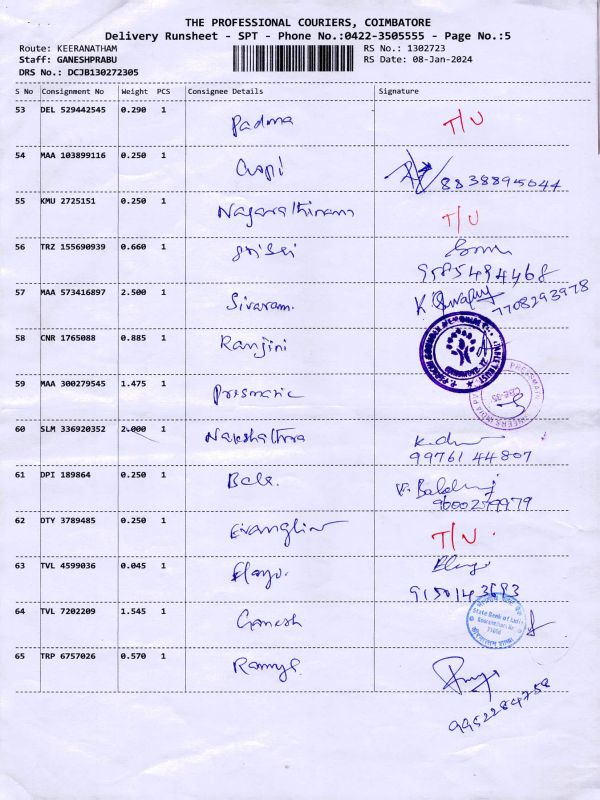 THE PROFESSIONAL COURIERS, COIMBATORE
Delivery Runsheet - SPT - Phone No.:0422-3505555 - Page No.:5
Route: KEERANATHAM RS No.: 1302723
Staff: GANESHPRABU RS Date: 08-Jan-2024
DRS No.: DCJB130272305
S No Consignment No Weight PCS Consignee Details Signature
53 DEL 529442545 0.290 1 Padma T/U
54 MAA 103899116 0.250 1 Gopi 8838895044
55 KMU 2725151 0.250 1 Nagarathinam T/U
56 TRZ 155690939 0.660 1 Sri Sri
9585494468
57 MAA 573416897 2.500 1 Sivaram. 7708293978
58 CNR 1765088 0.885 1 Ranjini
59 MAA 300279545 1.475 1 Prismatic
60 SLM 336920352 2.000 1 Nakshathra
99761 44807
61 DPI 189864 0.250 1 Bala.
9600279979
62 DTY 3789485 0.250 1 Evanglin T/U.
63 TVL 4599036 0.045 1 Elayo.
9150143693
64 TVL 7202209 1.545 1 Ganesh State Bank of India
65 TRP 6757026 0.570 1 Ramya.
9952284758